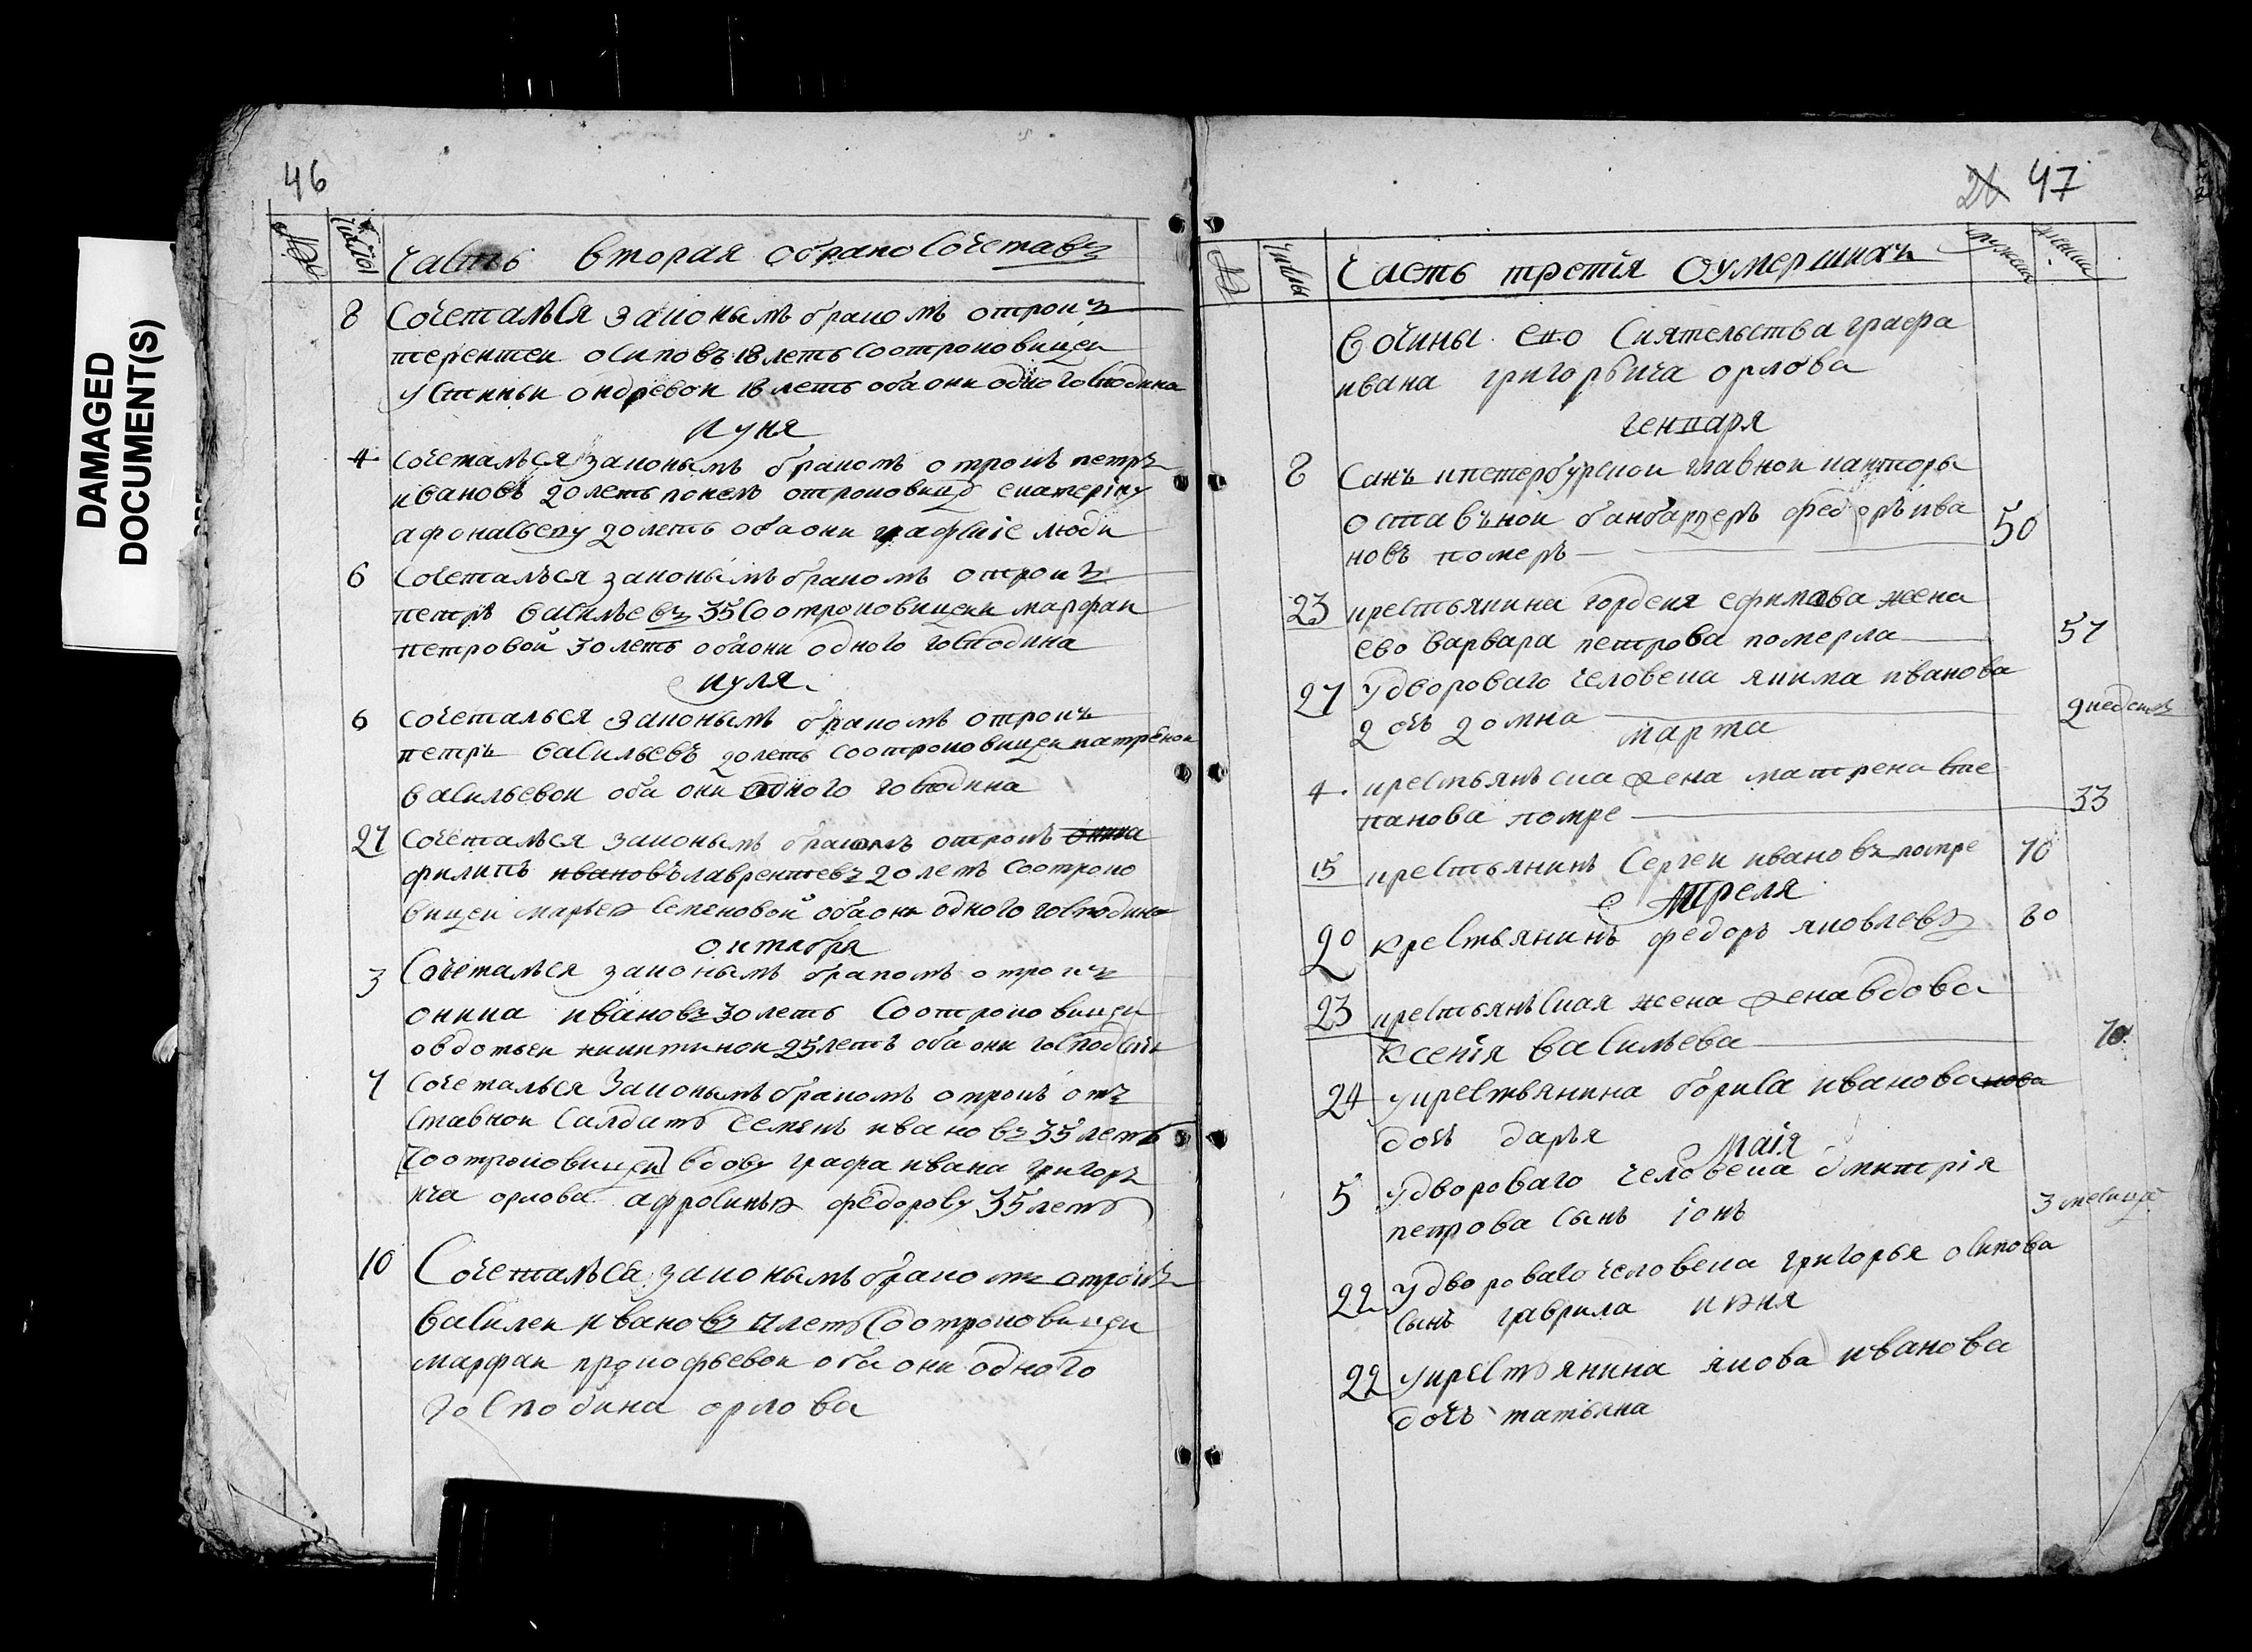 DAMAGED
DOCUMENT(S)
46
№ числы Часть вторая обрако сочетавъ
8 Сочеталься законымъ бракомъ отрокъ
терентеи осиповъ 18 леть соотроковицеи
устиньи ондревои 18 леть оба они одного господина
иуня
4 сочеталься законымъ бракомъ отрокъ петръ
ивановъ 20 леть понелъ отроковицу екатерiну
афонасьеву 20 леть оба они графские люди
6 Сочеталься законымъ бракомъ отрокъ
петръ василиевъ 35 соотроковицеи марфаи
петровои 30 леть оба они одного господина
иуля
6 сочеталься законымъ бракомъ отрокъ
петръ васильевъ 20 леть соотроковицеи матреной
васильевои оба они одного господина
27 сочеталься законымъ бракомъ отрокъ
филипъ ивановъ лаврентевъ 20 леть соотроко
вицеи марьеи семеновой оба они одного господина
октября
3 Сочеталься законымъ бракомъ отрокъ
оника ивановъ 30 леть соотроковицеи
овдотьеи никитинои 25 леть оба они господски
7 Сочеталься законымъ бракомъ отрокъ отъ
ставнои салдатъ семенъ ивановъ 35 леть
соотроковицеи вдову графа ивана григорь
ича орлова афросинью федорову 35 леть
10 Сочеталься законымъ бракомъ отрокъ
василеи ивановъ леть соотроковицеи
марфаи прокофьевои оба они одного
господина орлова
26 47
№ числы Часть третiя оумершихъ мужеска женска
вочины ево сиятельства графа
ивана григорьича орлова
генваря
8 Санкипетербурскои главнои канторы
оставънои банбардеръ федоръ ива 50
новъ померъ
23 крестьянина гордеия ефимова жена
ево варвара петрова померла 57
27 у дворового человека якима иванова
дочь домна 2 недель
марта
4 крестьянъска жена матрена сте
панова помре 33
15 крестьянинъ сергеи ивановъ помре 70
Апреля
20 крестьянинъ федоръ яковлевъ 80
23 крестьянъская жена вдова
ксенiя васильева 70
24 у крестьянина бориса иванова нова
дочь дарья
Маiя
5 у дворового человека дмитрiя
петрова сынъ iонъ 3 месица
22 у дворового человека григорья осипова
сынъ гаврила июня
22 у крестьянина якова иванова
дочь татьяна